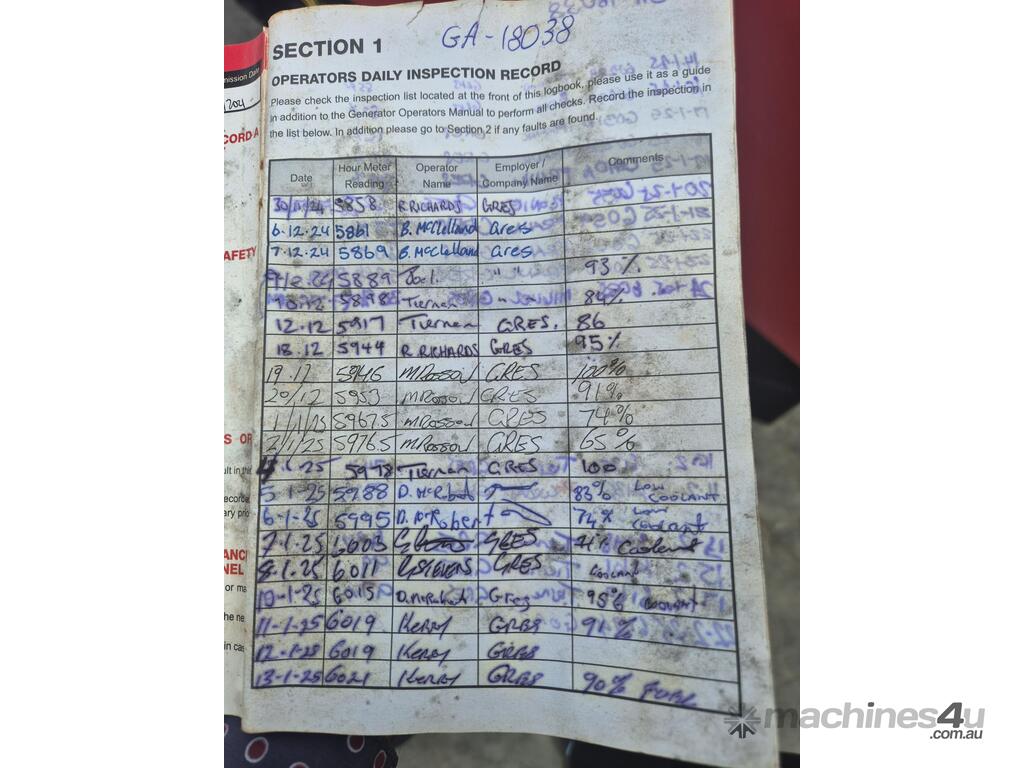 SECTION 1
GA-18038
OPERATORS DAILY INSPECTION RECORD
Please check the inspection list located at the front of this logbook, please use it as a guide
in addition to the Generator Operators Manual to perform all checks. Record the inspection in
the list below. In addition please go to Section 2 if any faults are found.
Date Hour Meter Reading Operator Name Employer / Company Name Comments
5858 R.RICHARDS GRES
6.12.24 5861 B. McClelland Gres
7.12.24 5869 B. McClelland Gres
5889 Joel. " " 93%
5898 Tiernan " 84%
12.12 5917 Tiernan GRES. 86
18.12 5944 R RICHARDS GRES 95%
19.12 5946 GRES 100%
20/12 5953 GRES 91%
1/1/25 5967.5 GRES 74%
2/1/25 5976.5 GRES 65%
4.1.25 5978 Tiernan GRES 100
5-1-25 5988 83% LOW COOLANT
6-1-25 5995 D. McRobert 74% Low Coolant
7.1.25 6003 GRES 71% Coolant
8.1.25 6011 GRES COOLANT
10-1-25 6015 95% COOLANT
11-1-25 6019 KERRY GRES 91%
12-1-25 6019 KERRY GRES
13-1-25 6021 KERRY GRES 90% FUEL
machines4u
.com.au